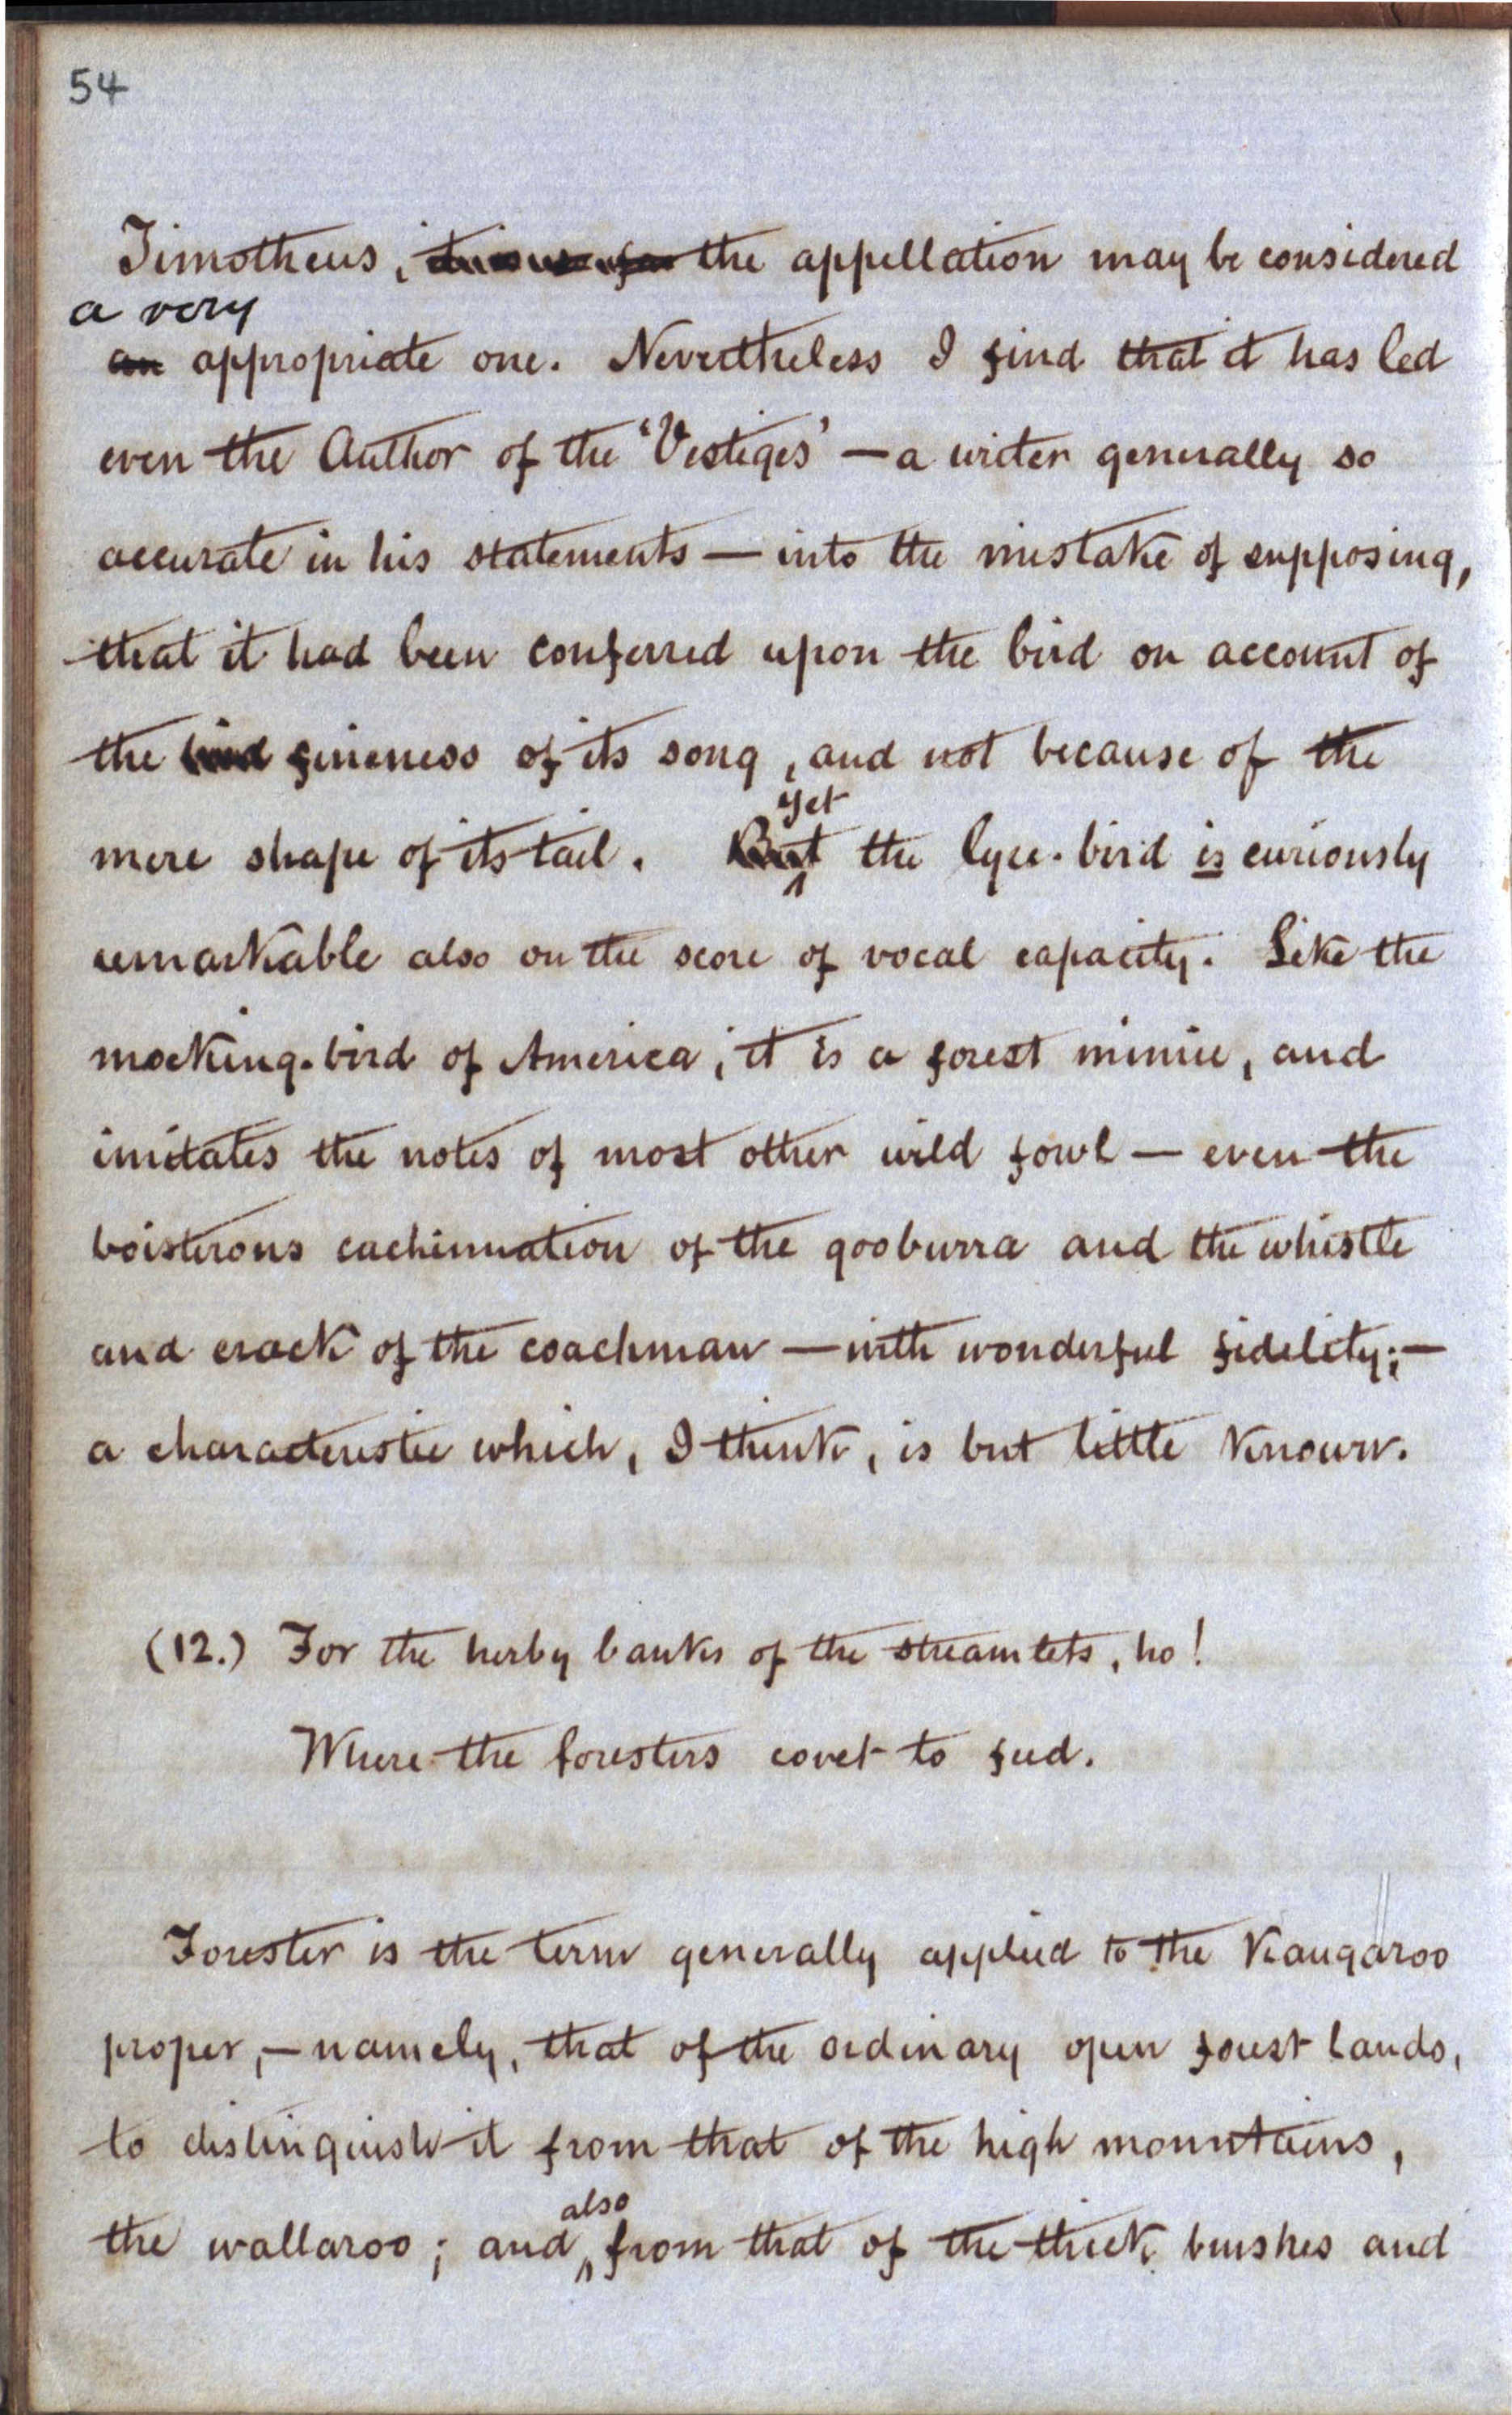 54
Timotheus, the appellation may be considered
a very
an appropriate one. Nevertheless I find that it has led
even the Author of the 'Vestiges' — a writer generally so
accurate in his statements — into the mistake of supposing,
that it had been conferred upon the bird on account of
the bird fineness of its song, and not because of the
yet
mere shape of its tail. But the lyre-bird is curiously
remarkable also on the score of vocal capacity. Like the
mocking-bird of America, it is a forest mimic, and
imitates the notes of most other wild fowl — even the
boisterous cachinnation of the gooburra and the whistle
and crack of the coachman — with wonderful fidelity; —
a characteristic which, I think, is but little known.
(12.) For the herby banks of the streamlets, ho!
Where the foresters covet to feed.
Forester is the term generally applied to the Kangaroo
proper, — namely, that of the ordinary open forest lands,
to distinguish it from that of the high mountains,
also
the wallaroo; and from that of the thick bushes and